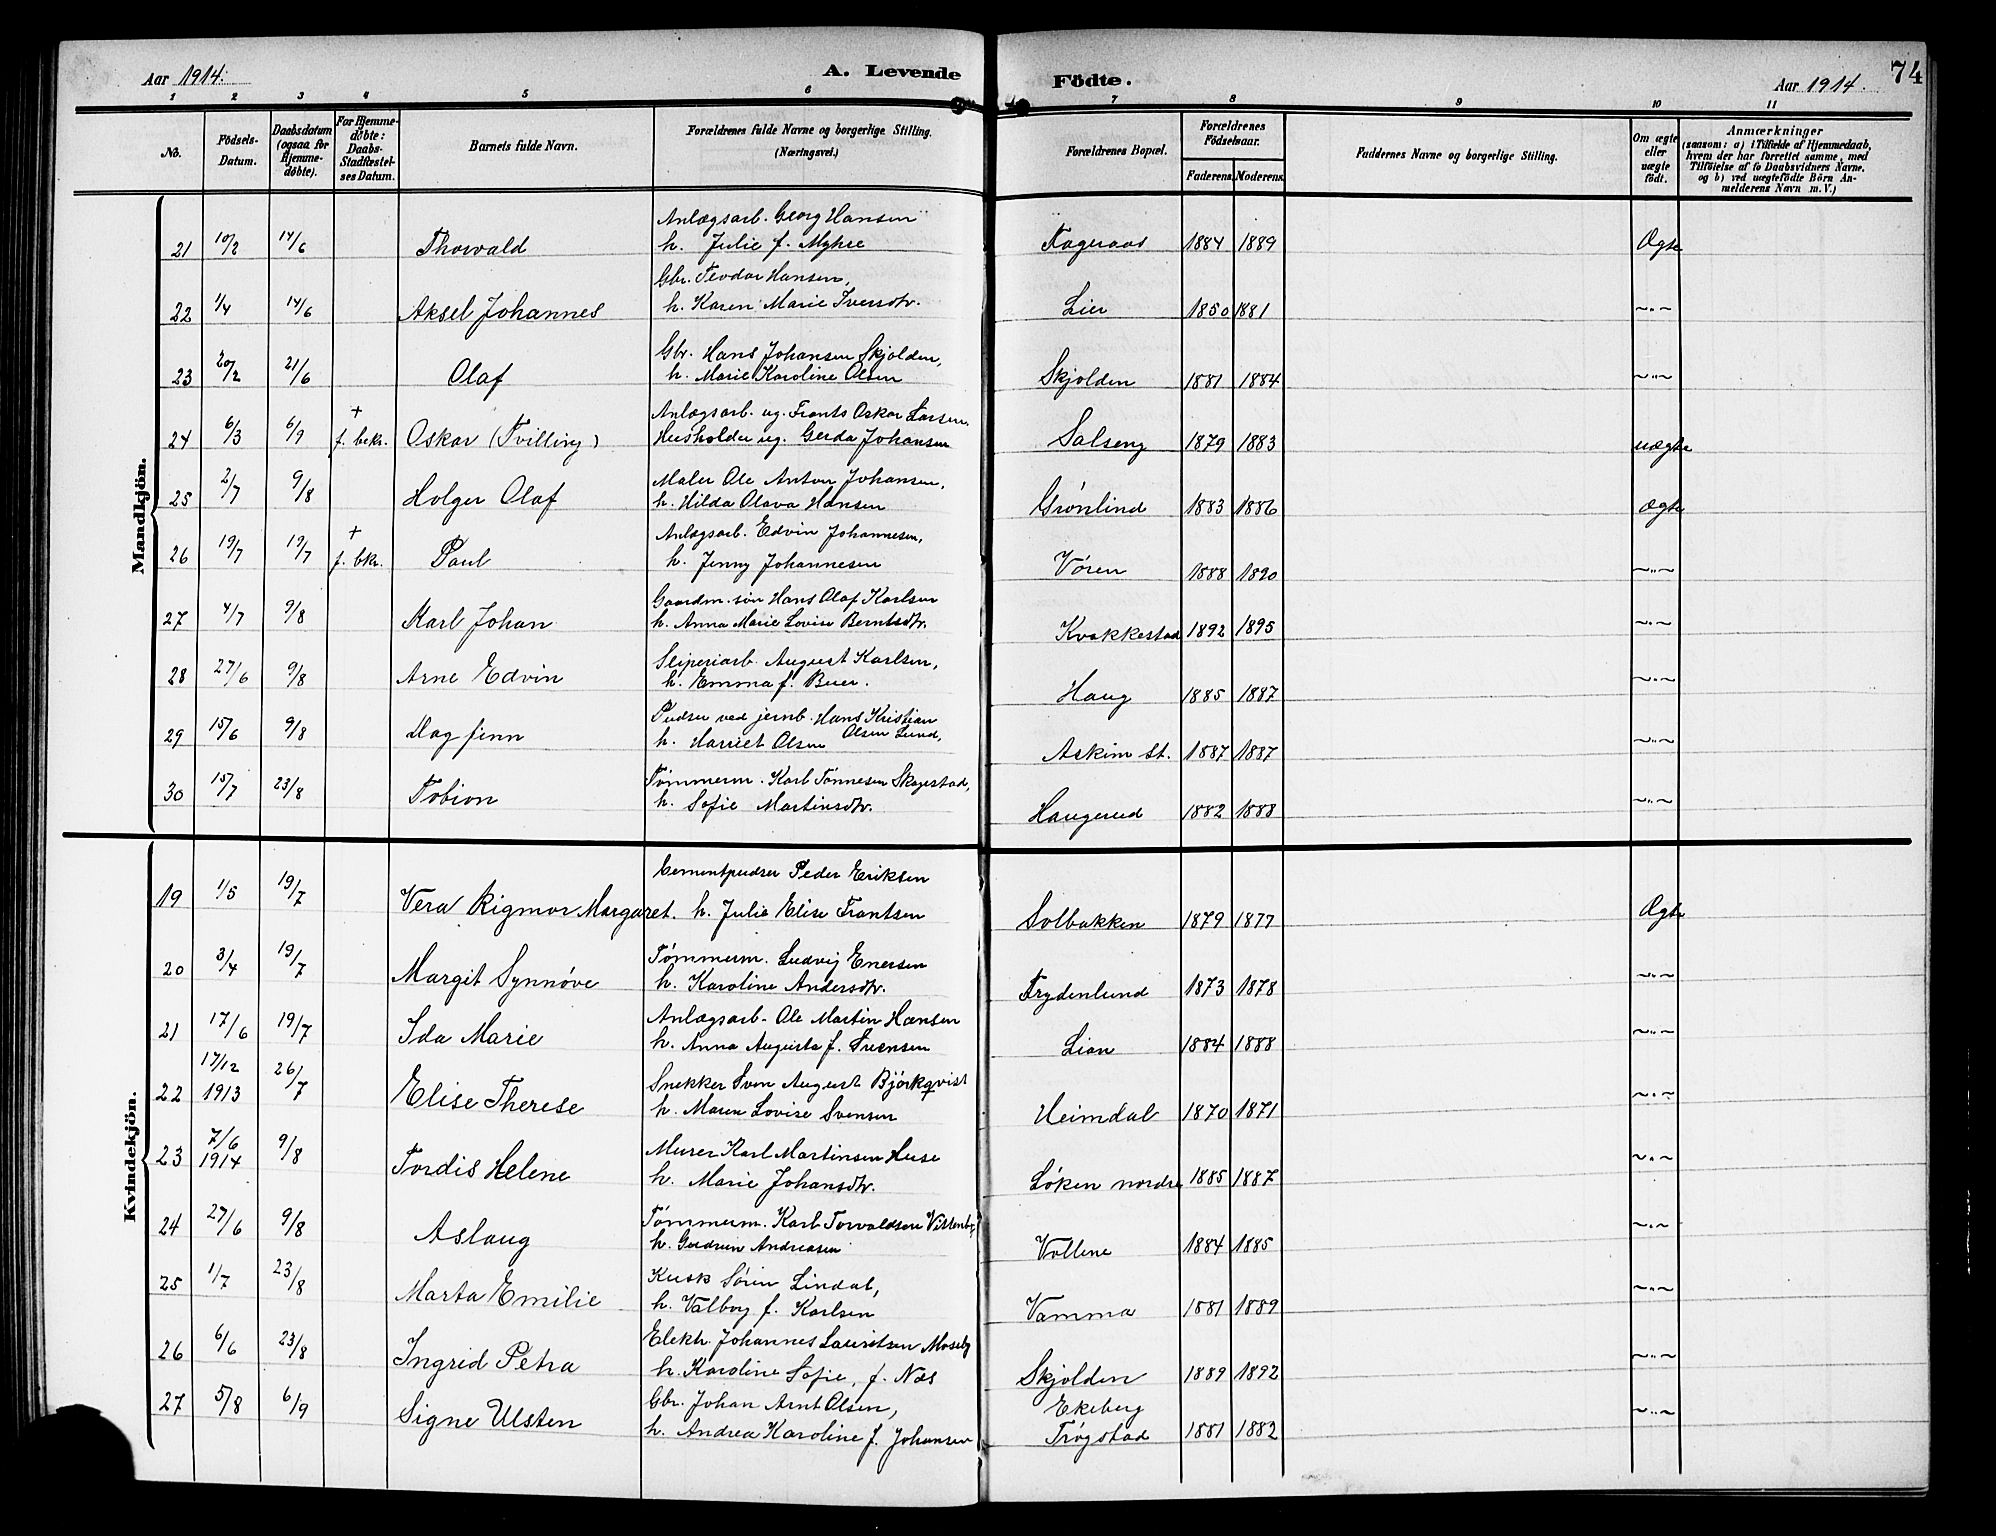 Aar 1914. A. Levende Födte. Aar 1914. 74
1 2 3 4 5 6 7 8 9 10 11
No. Födsels-Datum. Daabsdatum (ogsaa for Hjemmedøbte). For Hjemmedøbte: Daabs-Stadfæstelses Datum. Barnets fulde Navn. Forældrenes fulde Navne og borgerlige Stilling. (Næringsvei.) Forældrenes Bopæl. Forældrenes Födselsaar. Faderens. Moderens. Faddernes Navne og borgerlige Stilling. Om ægte eller uægte födt. Anmærkninger (saasom: a) i Tilfælde af Hjemmedaab, hvem der har forrettet samme, med Tilföielse af to Daabsvidners Navne, og b) ved uægtefödte Börn Anmelderens Navn m. V.)
Mandkjön.
Anlægsarb. Georg Hansen
21 10/2 14/6 Thorvald h. Julie f. Myhre Fageraas 1884 1889 Ægte
Gbr. Teodor Hansen,
22 1/4 14/6 Aksel Johannes h. Karen Marie Iversdtr. Lier 1850 1881 ~"~
Gbr. Hans Johansen Skjolden,
23 20/2 21/6 Olaf h. Marie Karoline Olsen Skjolden 1881 1884 ~"~
+ Anlægsarb. ug. Frants Oskar Larsen,
24 6/3 6/9 f. bekr. Oskar (Tvilling) Husholder ug. Gerda Johansen Solseng 1879 1883 uægte
Maler Ole Anton Johansen,
25 2/7 9/8 Holger Olaf h. Hilda Olava Hansen Grønlind 1883 1886 ægte
+ Anlægsarb. Edvin Johannesen,
26 19/7 19/7 f. bkr. Paul h. Jenny Johannesen Vøren 1888 1890 ~"~
Gaardm. søn Hans Olaf Karlsen
27 4/7 9/8 Karl Johan h. Anna Marie Lovise Berntsdtr. Kvakkestad 1892 1895 ~"~
Sliperiarb. August Karlsen,
28 27/6 9/8 Arne Edvin h. Emma f. Buer. Haug 1885 1887 ~"~
Pudser ved jernb. Hans Kristian
Olsen Lund,
29 15/6 9/8 Dag finn h. Harriet Olsen Askim st. 1887 1887 ~"~
Tømmerm. Karl Tønnesen Skagestad,
30 15/7 23/8 Tobion h. Sofie Martinsdtr. Haugerud 1882 1888 ~"~
Kvindekjön.
Cementpudser Peder Eriksen
19 1/5 19/7 Vera Rigmor Margaret. h. Julie Elise Frantsen Solbakken 1879 1877 Ægte
Tømmerm. Ludvig Enersen
20 3/4 19/7 Margit Synnøve h. Karoline Andersdtr. Frydenlund 1873 1878 ~"~
Anlægsarb. Ole Martin Hansen
21 17/6 19/7 Ida Marie h. Anna Augusta f. Svensen Lian 1884 1888 ~"~
17/12 26/7 Snekker Sven August Bjørkqvist
22 1913 Elise Therese h. Maren Lovise Svensen Heimdal 1870 1871 ~"~
7/6 9/8 Murer Karl Martinsen Huse
23 1914 Tordis Helene h. Marie Johansdtr. Løken nordre 1885 1887 ~"~
Tømmerm. Karl Torvaldsen
24 27/6 9/8 Aslaug h. Gudrun Andreasen Vollene 1884 1885 ~"~
Kusk Søren Lindal,
25 1/7 23/8 Marta Emilie h. Valborg f. Karlsen Vamma 1881 1889 ~"~
Elektr. Johannes Lauritsen Moseby
26 6/6 23/8 Ingrid Petra h. Karoline Sofie, f. Næs Skjolden 1889 1892 ~"~
Gbr. Johan Arnt Olsen, Ekeberg
27 5/8 6/9 Signe Ulsten h. Andrea Karoline f. Johansen Trøgstad 1881 1882 ~"~